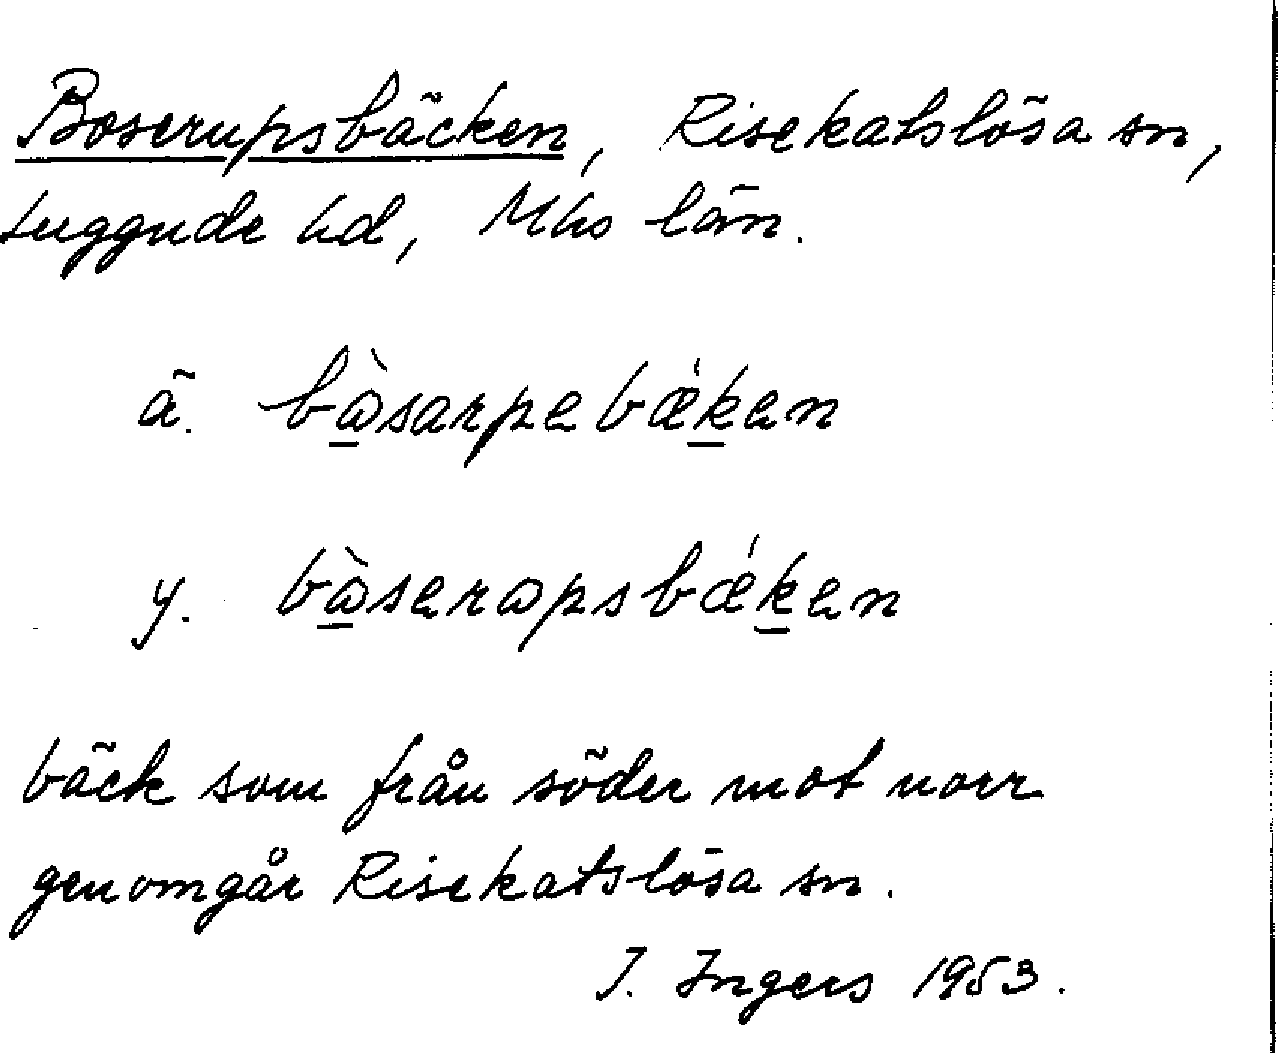 Boserupsbäcken, Risekatslösa sn,
Luggude hd, Mhs län.
ä. bòsarpebǽken
y. bòseropsbǽken
bäck som från söder mot norr
genomgår Risekatslösa sn.
I. Ingers 1953.